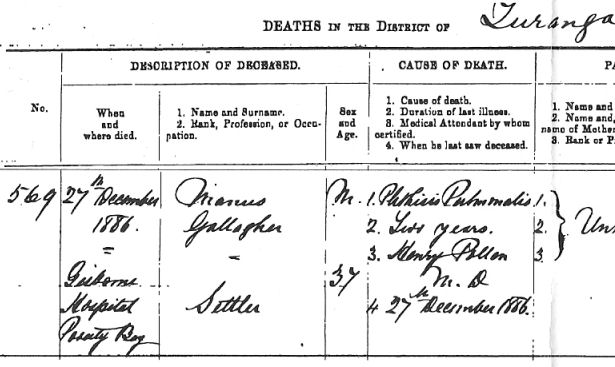 DEATHS IN THE DISTRICT OF Turanga
DESCRIPTION OF DECEASED.
CAUSE OF DEATH.
PA
No.
When
and
where died.
1. Name and Surname.
2. Rank, Profession, or Occu-
pation.
Sex
and
Age.
1. Cause of death.
2. Duration of last illness.
3. Medical Attendant by whom
certified.
4. When he last saw deceased.
1. Name and
2. Name and,
name of Mother
3. Rank or P
569
27th December
1886.
=
Gisborne
Hospital
Poverty Bay
Manus
Gallagher
Settler
M.
37
1. Phthisis Pulmonalis
2. Two years.
3. Henry Pollen
M. D
4 27th December 1886.
1.
2.
3.
Uns